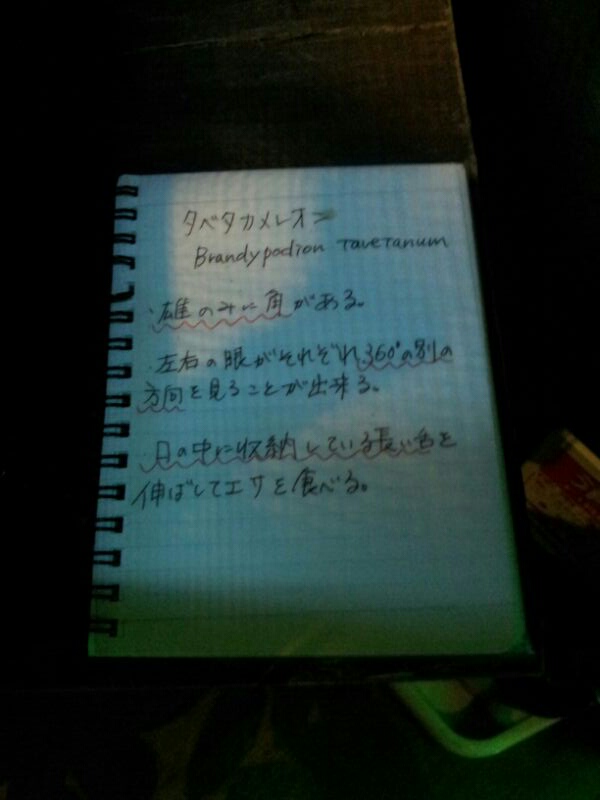 タベタカメレオン
Brandypodion Tavetanum
・雄のみに角がある。
・左右の眼がそれぞれ360°の別の
方向を見ることが出来る。
・口の中に収納している長い舌を
伸ばしてエサを食べる。